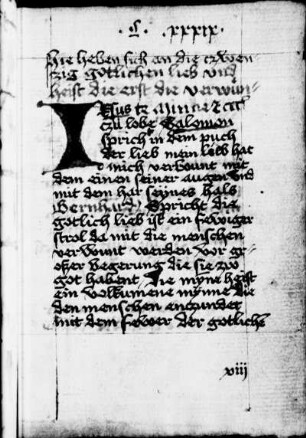 · C · xxxix ·
Hie heben sich an die czwen
czig götlichen lieb vnd
heist die erst die verwun
Jhsus tz Minne tz ach
czu lobe Salomon
sprich in dem puch
der lieb mein lieb hat
mich verbount mit
dem einen seiner augen Vnd
mit dem har seines hals
Bernhard) Spricht die
götlich lieb ist ein fewiger
strol da mit die menschen
verbount werden vor gr
oßer begerung die sie zw
got habent Die myne heist
Ein volkumene mynne die
den menschen enczundet
mit dem fewer der gotliche
viij